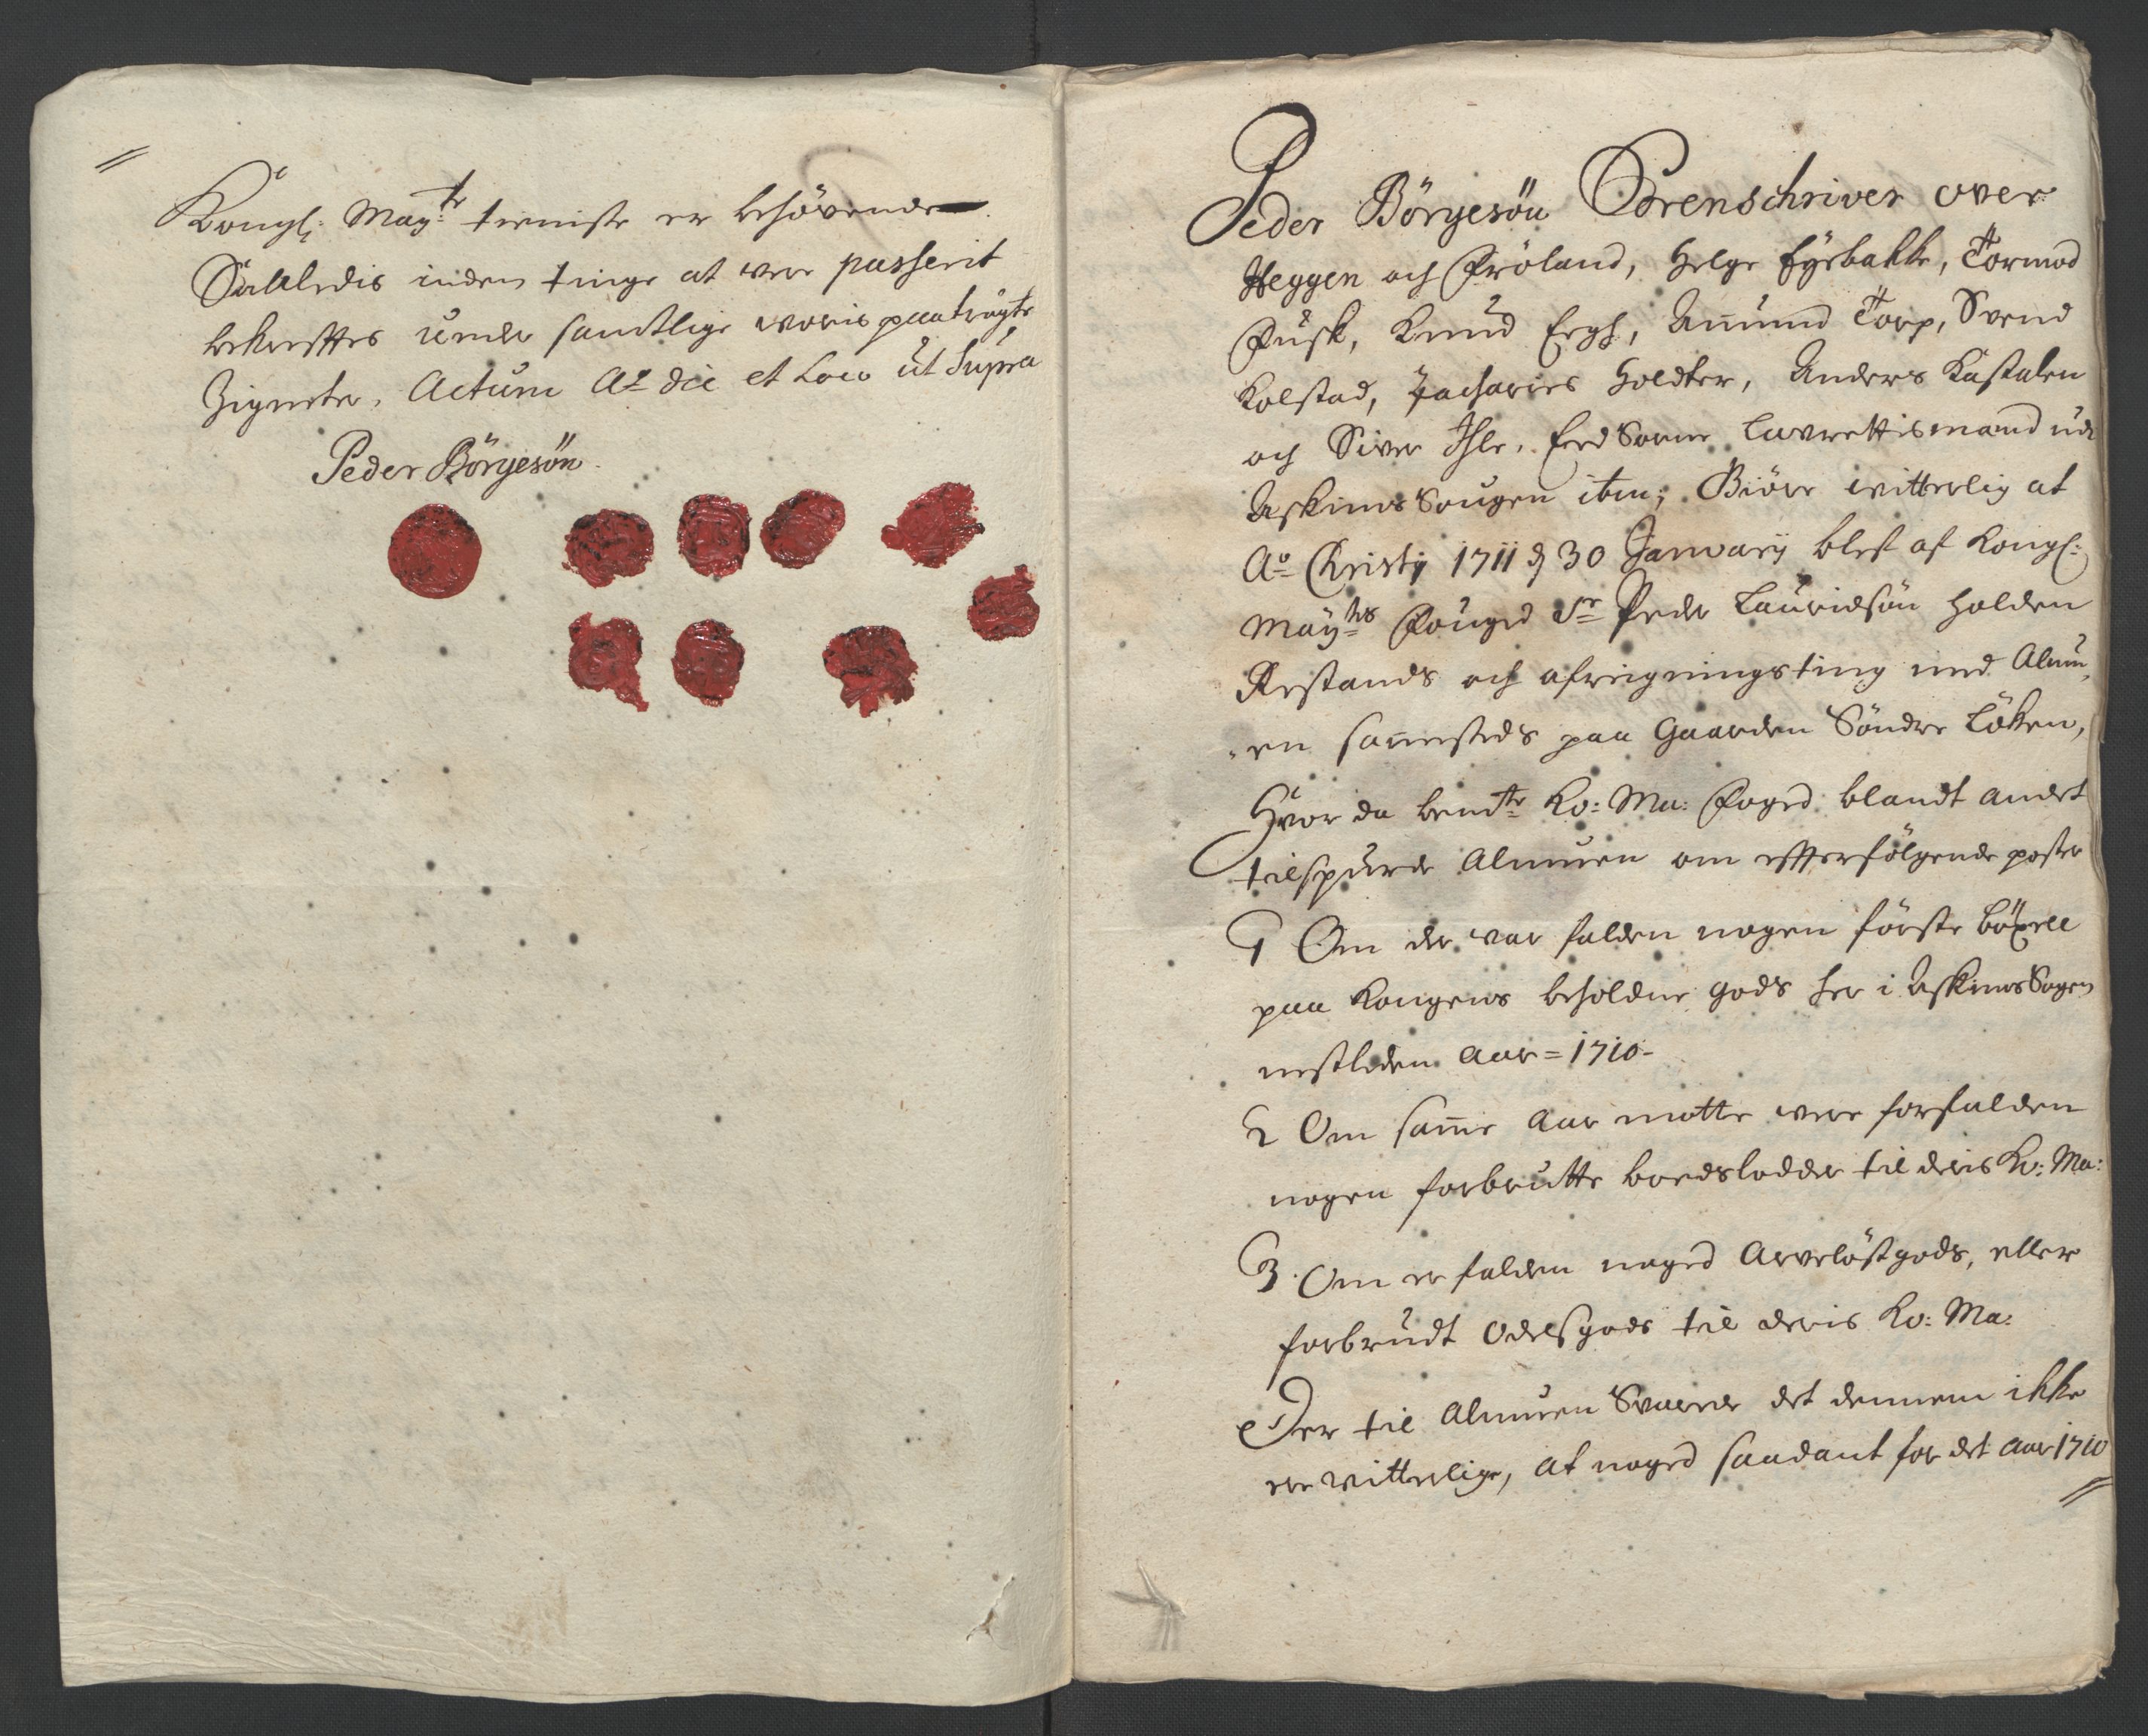 Kongl: May:ts tieniste er behövende
Saaledis inden tinge at vere passerit
bekrefftes under samtlige voris paatrögte
Zigneter. Actum Ao die et Loco ut Supra
Peder Börgesön
Peder Börgesön Sorenschriver over
Heggen och Fröland, Helge Eyebakke, Tormod
Rusk, Knud Ergh, Amund Torp, Svend
Kolstad, Zacharies Holdter, Anders Kastalen
och Siver Ihle, Eed Sorne Lavrettismænd udi
Askims Sougen ibm; Giöre vitterlig at
Ao Christij 1711 d 30 Januarij blef af Kongl:
Mayts Fouged Sr Peder Lauridsön holden
Restands och afreigningsting med Almu,
en sammesteds paa Gaarden Söndre Löken,
Hvor da bemte Ko: Ma: Foged blandt andet
tilspurde Almuen om effterfölgende poster
1 Om der var falden nogen förste böxell
paa Kongens beholdne gods her i Askims Sogen
nestleden Aar = 1710 -
2 Om samme Aar motte vere forfalden
nogen forbrutte boeslodder til deris Ko: Ma:
3 Om er falden noged Arvelöst gods, eller
forbrudt Odelsgods til deris Ko: Ma:
Der til Almuen Svarede det dennem ikke
er vitterlige, at noged saadant for det aar 1710